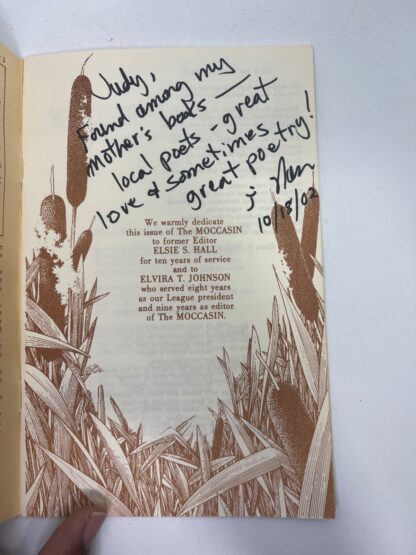 Judy,
Found among my
mother's books —
local poets - great
love & sometimes
great poetry!
10/18/02
We warmly dedicate
this issue of The MOCCASIN
to former Editor
ELSIE S. HALL
for ten years of service
and to
ELVIRA T. JOHNSON
who served eight years
as our League president
and nine years as editor
of The MOCCASIN.